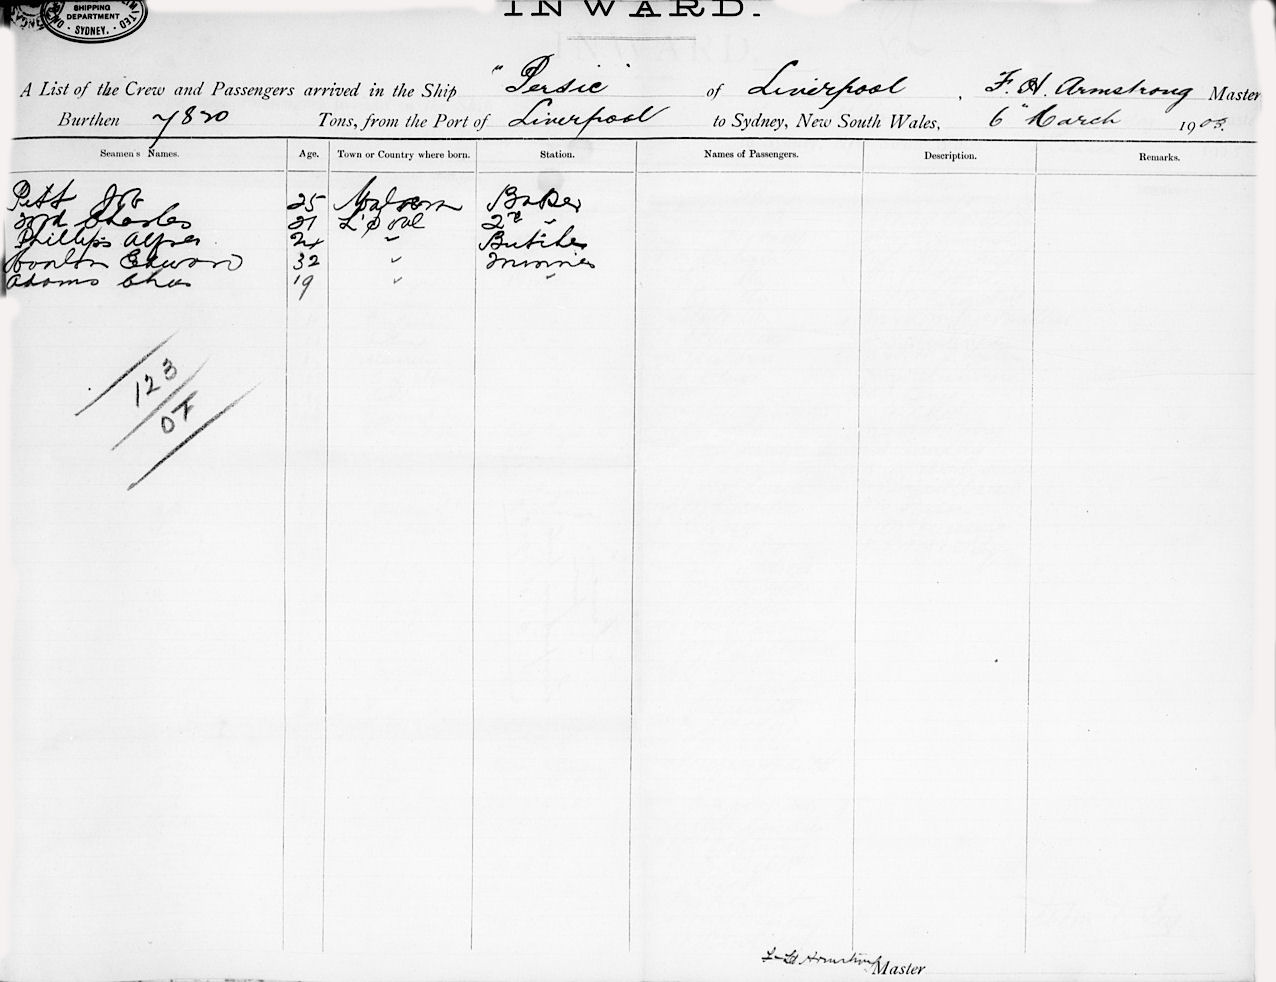 SHIPPING
DEPARTMENT
SYDNEY.
INWARD.
A List of the Crew and Passengers arrived in the Ship "Persic" of Liverpool, F. H. Armstrong Master
Burthen 7820 Tons, from the Port of Liverpool to Sydney, New South Wales, 6" March 1903.
Seamen's Names. Age. Town or Country where born. Station. Names of Passengers. Description. Remarks.
Pitt 25 Malvern Baker
Charles 21 L'pool 2nd "
Phillips Alfred 24 " Butcher
Edward 32 "
Adams Chas 19 " "
123
07
Armstrong Master